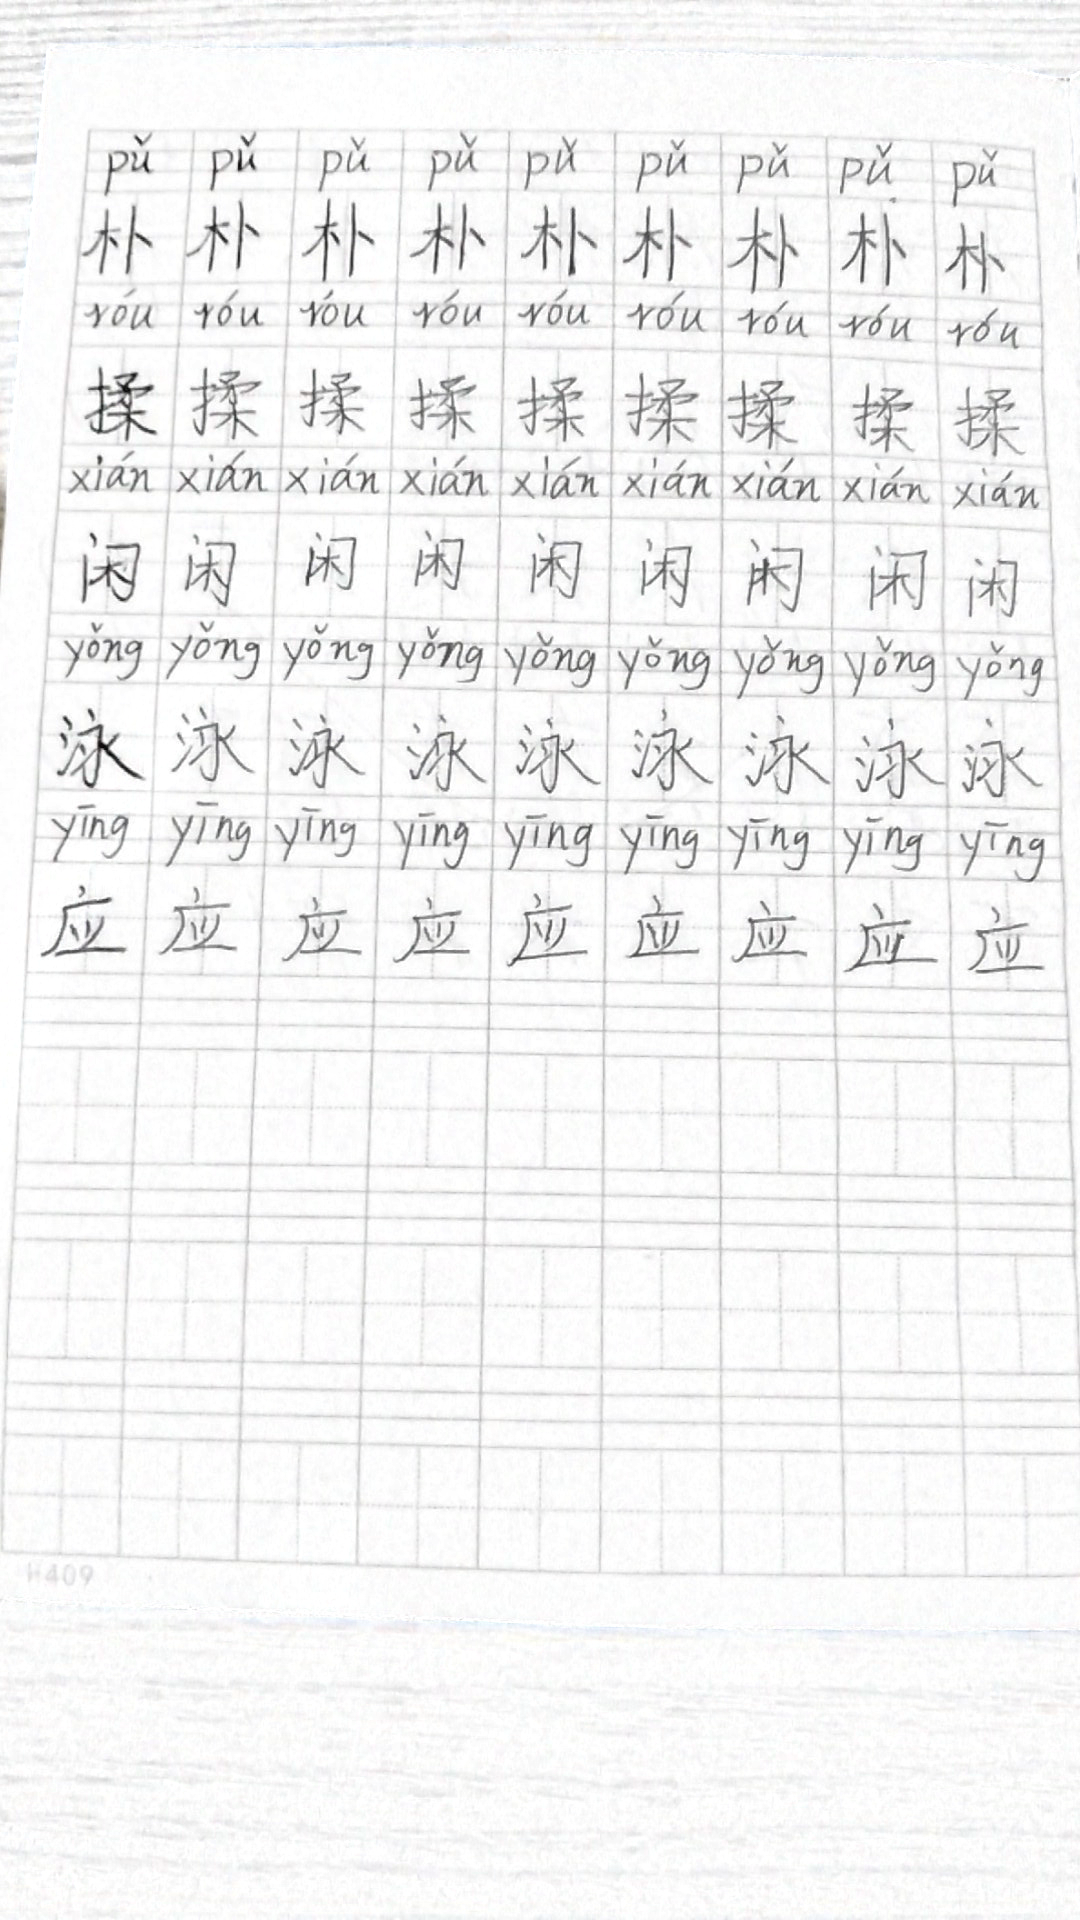 pǔ pǔ pǔ pǔ pǔ pǔ pǔ pǔ pǔ
朴 朴 朴 朴 朴 朴 朴 朴 朴
róu róu róu róu róu róu róu róu róu
揉 揉 揉 揉 揉 揉 揉 揉 揉
xián xián xián xián xián xián xián xián xián
闲 闲 闲 闲 闲 闲 闲 闲 闲
yǒng yǒng yǒng yǒng yǒng yǒng yǒng yǒng yǒng
泳 泳 泳 泳 泳 泳 泳 泳 泳
yīng yīng yīng yīng yīng yīng yīng yīng yīng
应 应 应 应 应 应 应 应 应
H409